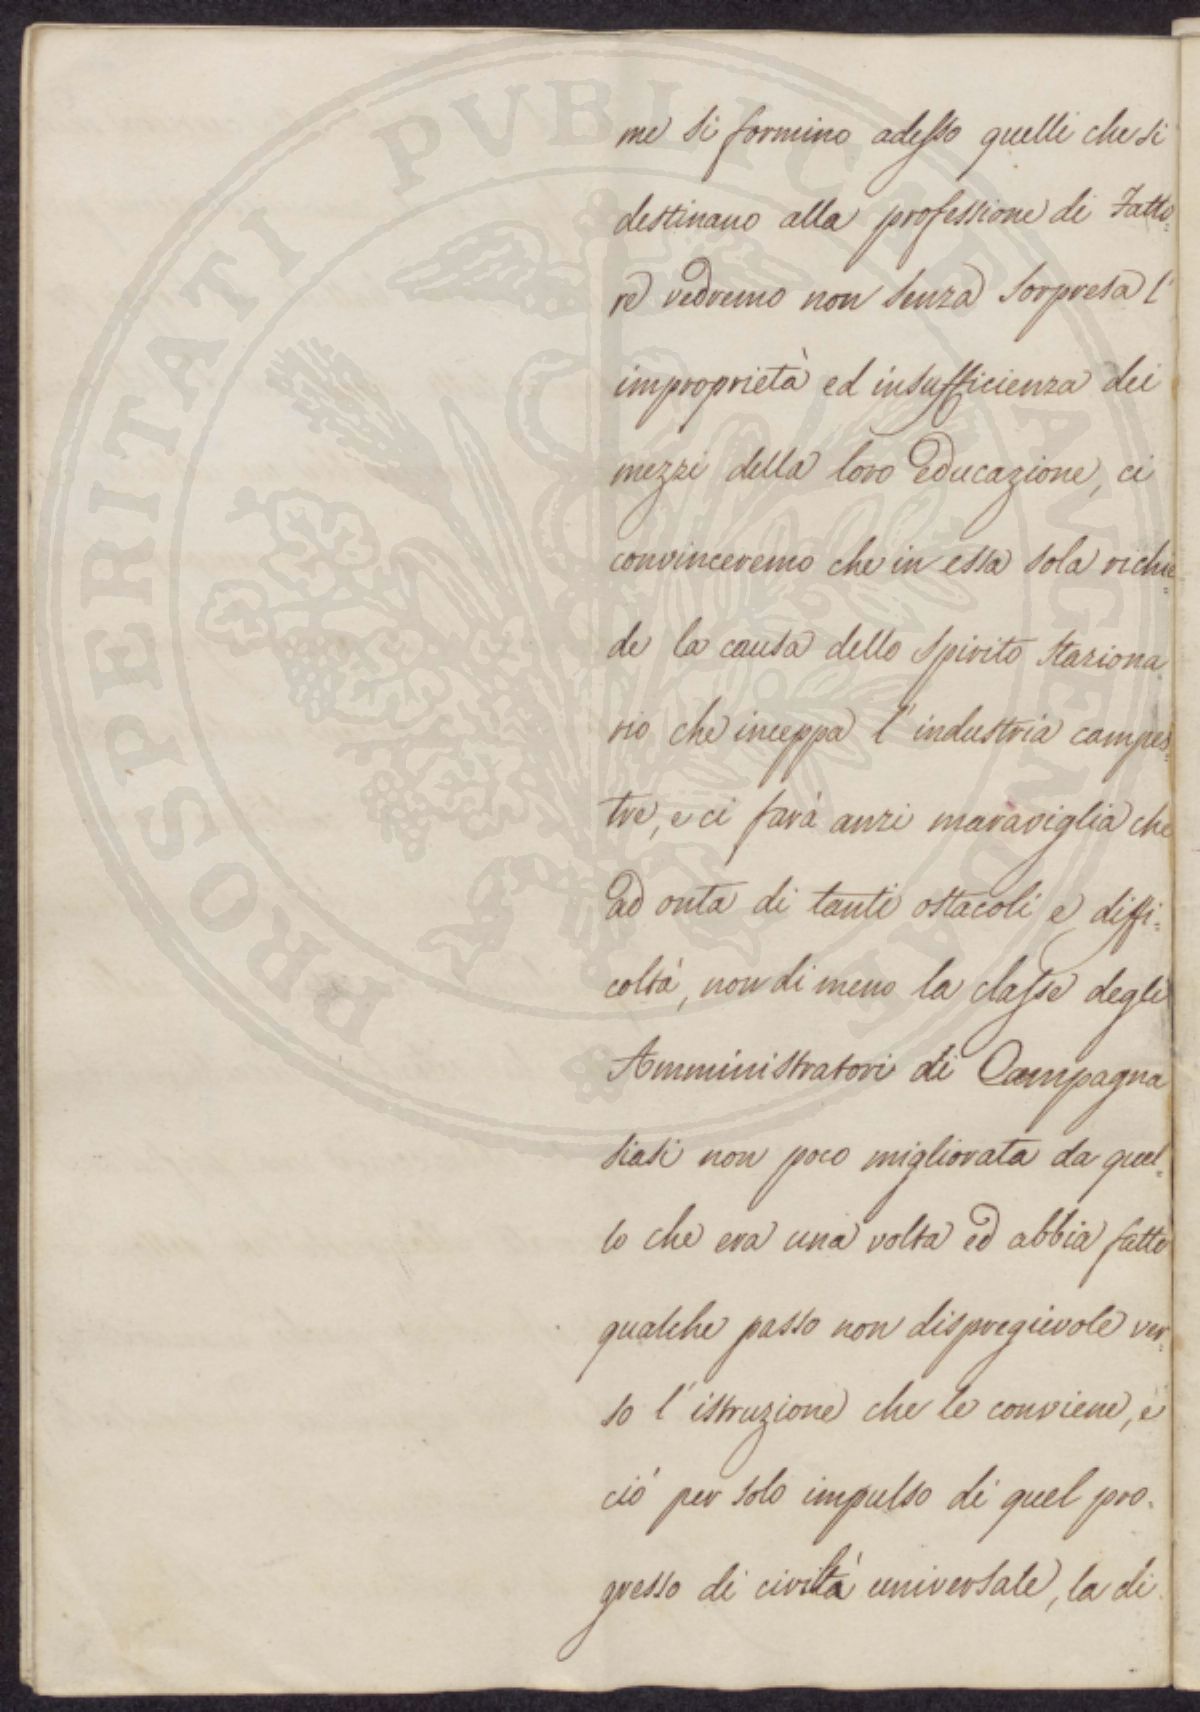 me si formino adesso quelli che si
destinano alla professione di Fatto-
re vedremo non senza sorpresa l'
improprietà ed insufficienza dei
mezzi della loro educazione, ci
convinceremo che in essa sola richie-
de la causa dello spirito staziona
rio che inceppa l'industria campes-
tre, e ci farà anzi maraviglia che
ad onta di tanti ostacoli e diffi-
coltà, non di meno la classe degli
Amministratori di Campagna
siasi non poco migliorata da quel-
lo che era una volta ed abbia fatto
qualche passo non dispregievole ver-
so l'istruzione che le conviene, e
ciò per solo impulso di quel pro-
gresso di civiltà universale, la di
PROSPERITATI PVBLICAE AVGENDAE